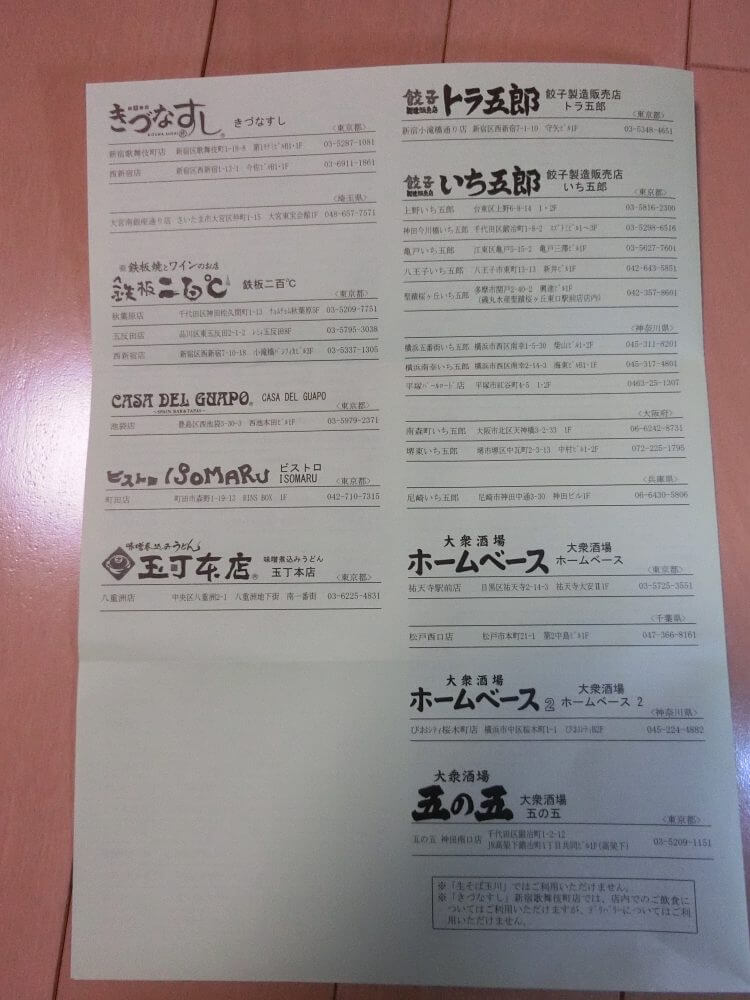 きづなすし
KIZUNA SUSHI
きづなすし
<東京都>
新宿歌舞伎町店 新宿区歌舞伎町1-18-8 B1・1F 03-5287-1081
西新宿店 新宿区西新宿1-12-1 今佐ﾋﾞﾙB1・1F 03-6911-1861
<埼玉県>
大宮南銀座通り店 さいたま市大宮区仲町1-15 大宮東宝会館1F 048-657-7571
※鉄板焼とワインのお店
鉄板二百℃
鉄板二百℃
<東京都>
秋葉原店 千代田区神田佐久間町1-13 ﾁｮﾑﾁｮﾑ秋葉原5F 03-5209-7751
五反田店 品川区東五反田2-1-2 五反田8F 03-5795-3038
西新宿店 新宿区西新宿7-10-18 小滝橋ﾊﾟｼﾌｨｶﾋﾞﾙ2F 03-5337-1305
CASA DEL GUAPO
SPAIN BAR&TAPAS
CASA DEL GUAPO
<東京都>
池袋店 豊島区西池袋3-30-3 西池本田ﾋﾞﾙ1F 03-5979-2371
ビストロ ISOMARU
ビストロ
ISOMARU
<東京都>
町田店 町田市森野1-19-13 RINS BOX 1F 042-710-7315
味噌煮込みうどん
玉丁本店
味噌煮込みうどん
玉丁本店
<東京都>
八重洲店 中央区八重洲2-1 八重洲地下街 南一番街 03-6225-4831
餃子製造販売店 トラ五郎
餃子製造販売店
トラ五郎
<東京都>
新宿小滝橋通り店 新宿区西新宿7-1-10 守矢ﾋﾞﾙ1F 03-5348-4651
餃子製造販売店 いち五郎
餃子製造販売店
いち五郎
<東京都>
上野いち五郎 台東区上野6-8-14 1・2F 03-5816-2300
神田今川橋いち五郎 千代田区鍛冶町1-8-2 1～3F 03-5298-6516
亀戸いち五郎 江東区亀戸5-15-2 亀戸三澤ﾋﾞﾙ1F 03-5627-7601
八王子いち五郎 八王子市東町13-13 新井ﾋﾞﾙ1F 042-643-5851
聖蹟桜ヶ丘いち五郎 多摩市関戸2-40-2 興達ﾋﾞﾙ1F
(磯丸水産聖蹟桜ヶ丘東口駅前店店内) 042-357-8601
<神奈川県>
横浜五番街いち五郎 横浜市西区南幸1-5-30 柴山ﾋﾞﾙ1・2F 045-311-8201
横浜南幸いち五郎 横浜市西区南幸2-14-3 海東ﾋﾞﾙB1・1F 045-317-4801
平塚ﾊﾟｰﾙﾛｰﾄﾞ店 平塚市紅谷町4-5 1・2F 0463-25-1307
<大阪府>
南森町いち五郎 大阪市北区天神橋3-2-33 1F 06-6242-8731
堺東いち五郎 堺市堺区中瓦町2-3-13 中村ﾋﾞﾙ1・2F 072-225-1795
<兵庫県>
尼崎いち五郎 尼崎市神田中通3-30 神田ビル1F 06-6430-5806
大衆酒場
ホームベース
大衆酒場
ホームベース
<東京都>
祐天寺駅前店 目黒区祐天寺2-14-3 祐天寺大安Ⅱ1F 03-5725-3551
<千葉県>
松戸西口店 松戸市本町21-1 第2中島ﾋﾞﾙ1F 047-366-8161
大衆酒場
ホームベース2
大衆酒場
ホームベース 2
<神奈川県>
ぴおｼﾃｨ桜木町店 横浜市中区桜木町1-1 ぴおｼﾃｨB2F 045-224-4882
大衆酒場
五の五
大衆酒場
五の五
<東京都>
五の五 神田南口店 千代田区鍛冶町1-2-12
JR高架下鍛冶町1丁目共同ﾋﾞﾙ1F(高架下) 03-5209-1151
※「生そば玉川」ではご利用いただけません。
※「きづなすし」新宿歌舞伎町店では、店内でのご飲食に
ついてはご利用いただけますが、ﾃﾞﾘﾊﾞﾘｰについてはご利
用いただけません。